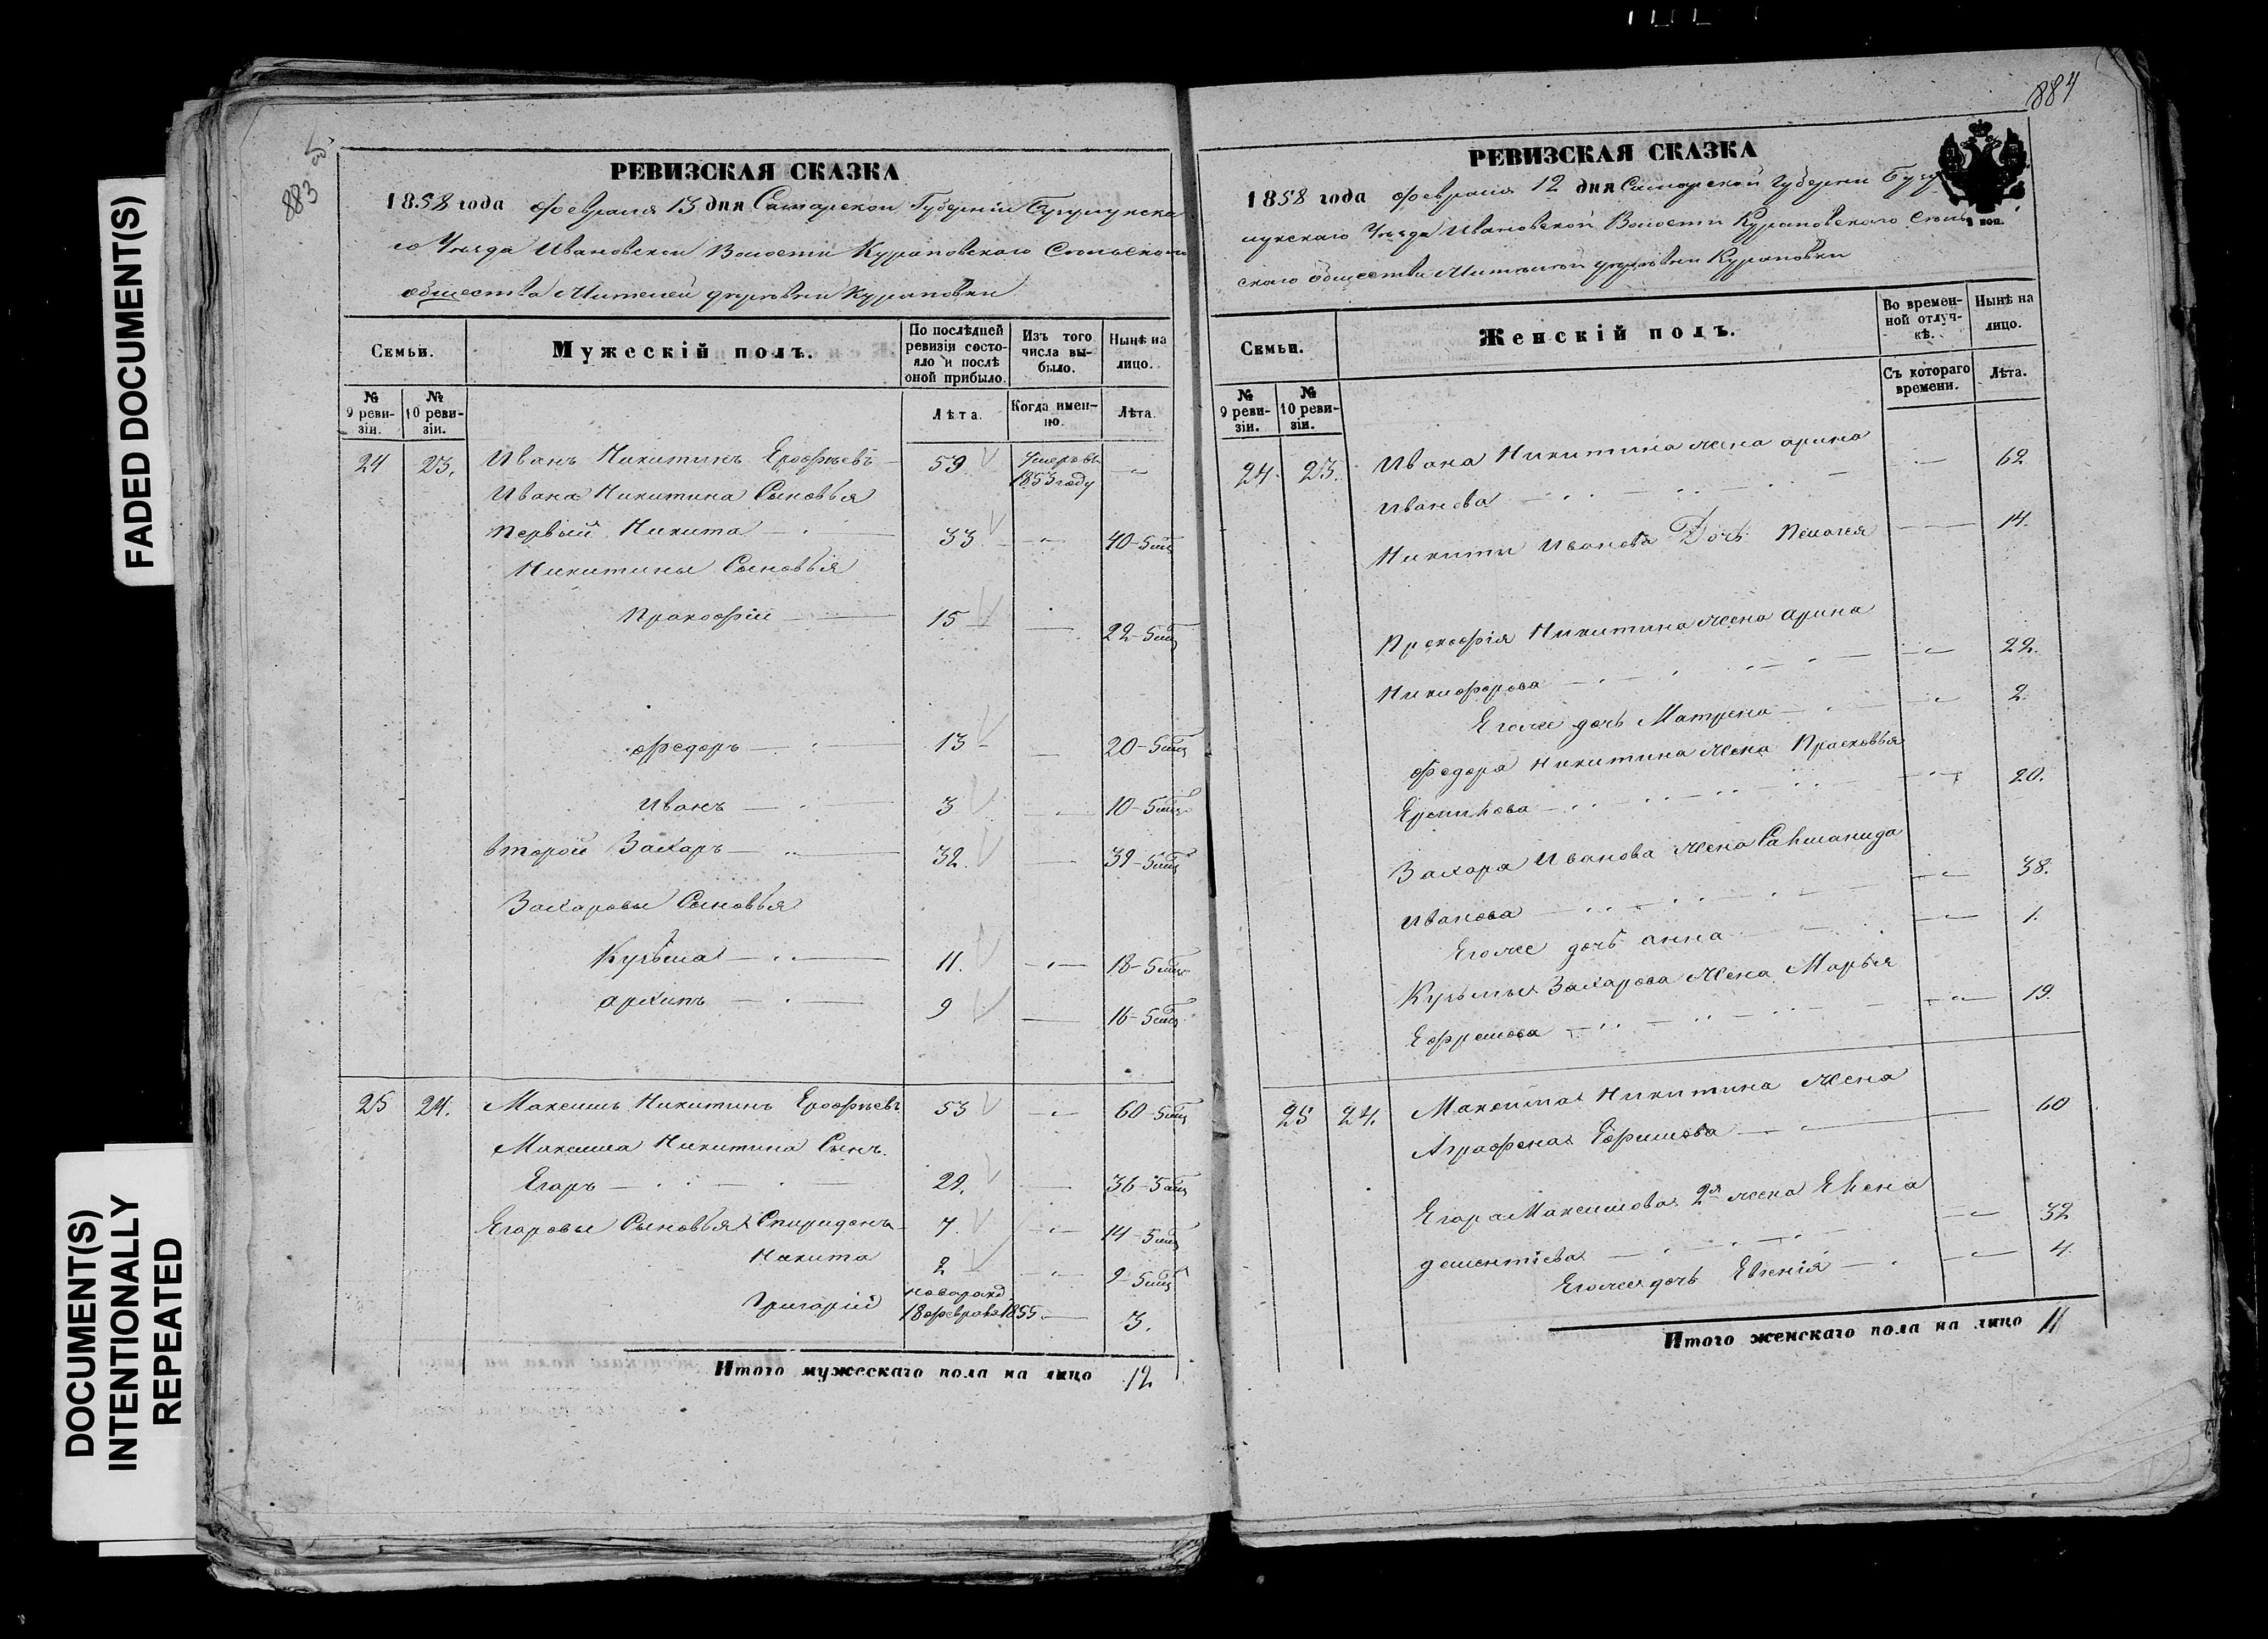 FADED DOCUMENT(S)
DOCUMENT(S)
INTENTIONALLY
REPEATED
883 об.
РЕВИЗСКАЯ СКАЗКА
1858 года февраля 13 дня Самарской Губерніи Бугульминска
го Уѣзда Ивановской Волости Кураповскаго Сельскаго
общества Жителей деревни Кураповки
Семьи.
Мужескій полъ.
По послѣдней ревизіи состояло и послѣ оной прибыло.
Изъ того числа выбыло.
Нынѣ на лицо.
№ 9 ревизіи.
№ 10 ревизіи.
Лѣта.
Когда именно.
Лѣта.
24 23. Иванъ Никитинъ Ерофѣевъ 59 Умеръ въ 1853 году
Ивана Никитина Сыновья
первый Никита 33 40-5 мц
Никитины Сыновья
Пракофій 15 22-5 мц
Федоръ 13 20-5 мц
Иванъ 3 10-5 мц
второй Захаръ 32. 39-5 мц
Захаровы Сыновья
Кузьма 11. 18-5 мц
архипъ 9 16-5 мц
25 24. Максимъ Никитинъ Ерофѣевъ 53 60-5 мц
Максима Никитина Сынъ.
Егоръ 29. 36-5 мц
Егоровы Сыновья Спиридонъ 7. 14-5 мц
Никита 2 9-5 мц
Григорій новорожд 18 февраля 1855 3.
Итого мужескаго пола на лицо 12
884
РЕВИЗСКАЯ СКАЗКА
1858 года февраля 12 дня Самарской Губерни Бугу
минскаго Уѣзда Ивановской Волости Кураповскаго Сель
скаго общества Жителей деревни Кураповки
Семьи.
Женскій полъ.
Во временной отлучкѣ.
Нынѣ на лицо.
№ 9 ревизіи.
№ 10 ревизіи.
Съ котораго времени.
Лѣта.
24. 23. Ивана Никитина жена арина
Иванова 62
Никиты Иванова Дочь Пелагея 14.
Прокофія Никитина жена арина
Никифорова 22.
Егоже дочь Матрена 2.
Федора Никитина жена Прасковья
20.
Захара Иванова жена
Иванова 38.
Егоже дочь анна 1.
Кузьмы Захарова жена Марья
Ефремова 19.
25 24. Максима Никитина жена
Аграфена Ефимова 60
Егора Максимова 2я жена Елена
дементіева 32
Егоже дочь Евгенія 4.
Итого женскаго пола на лицо 11